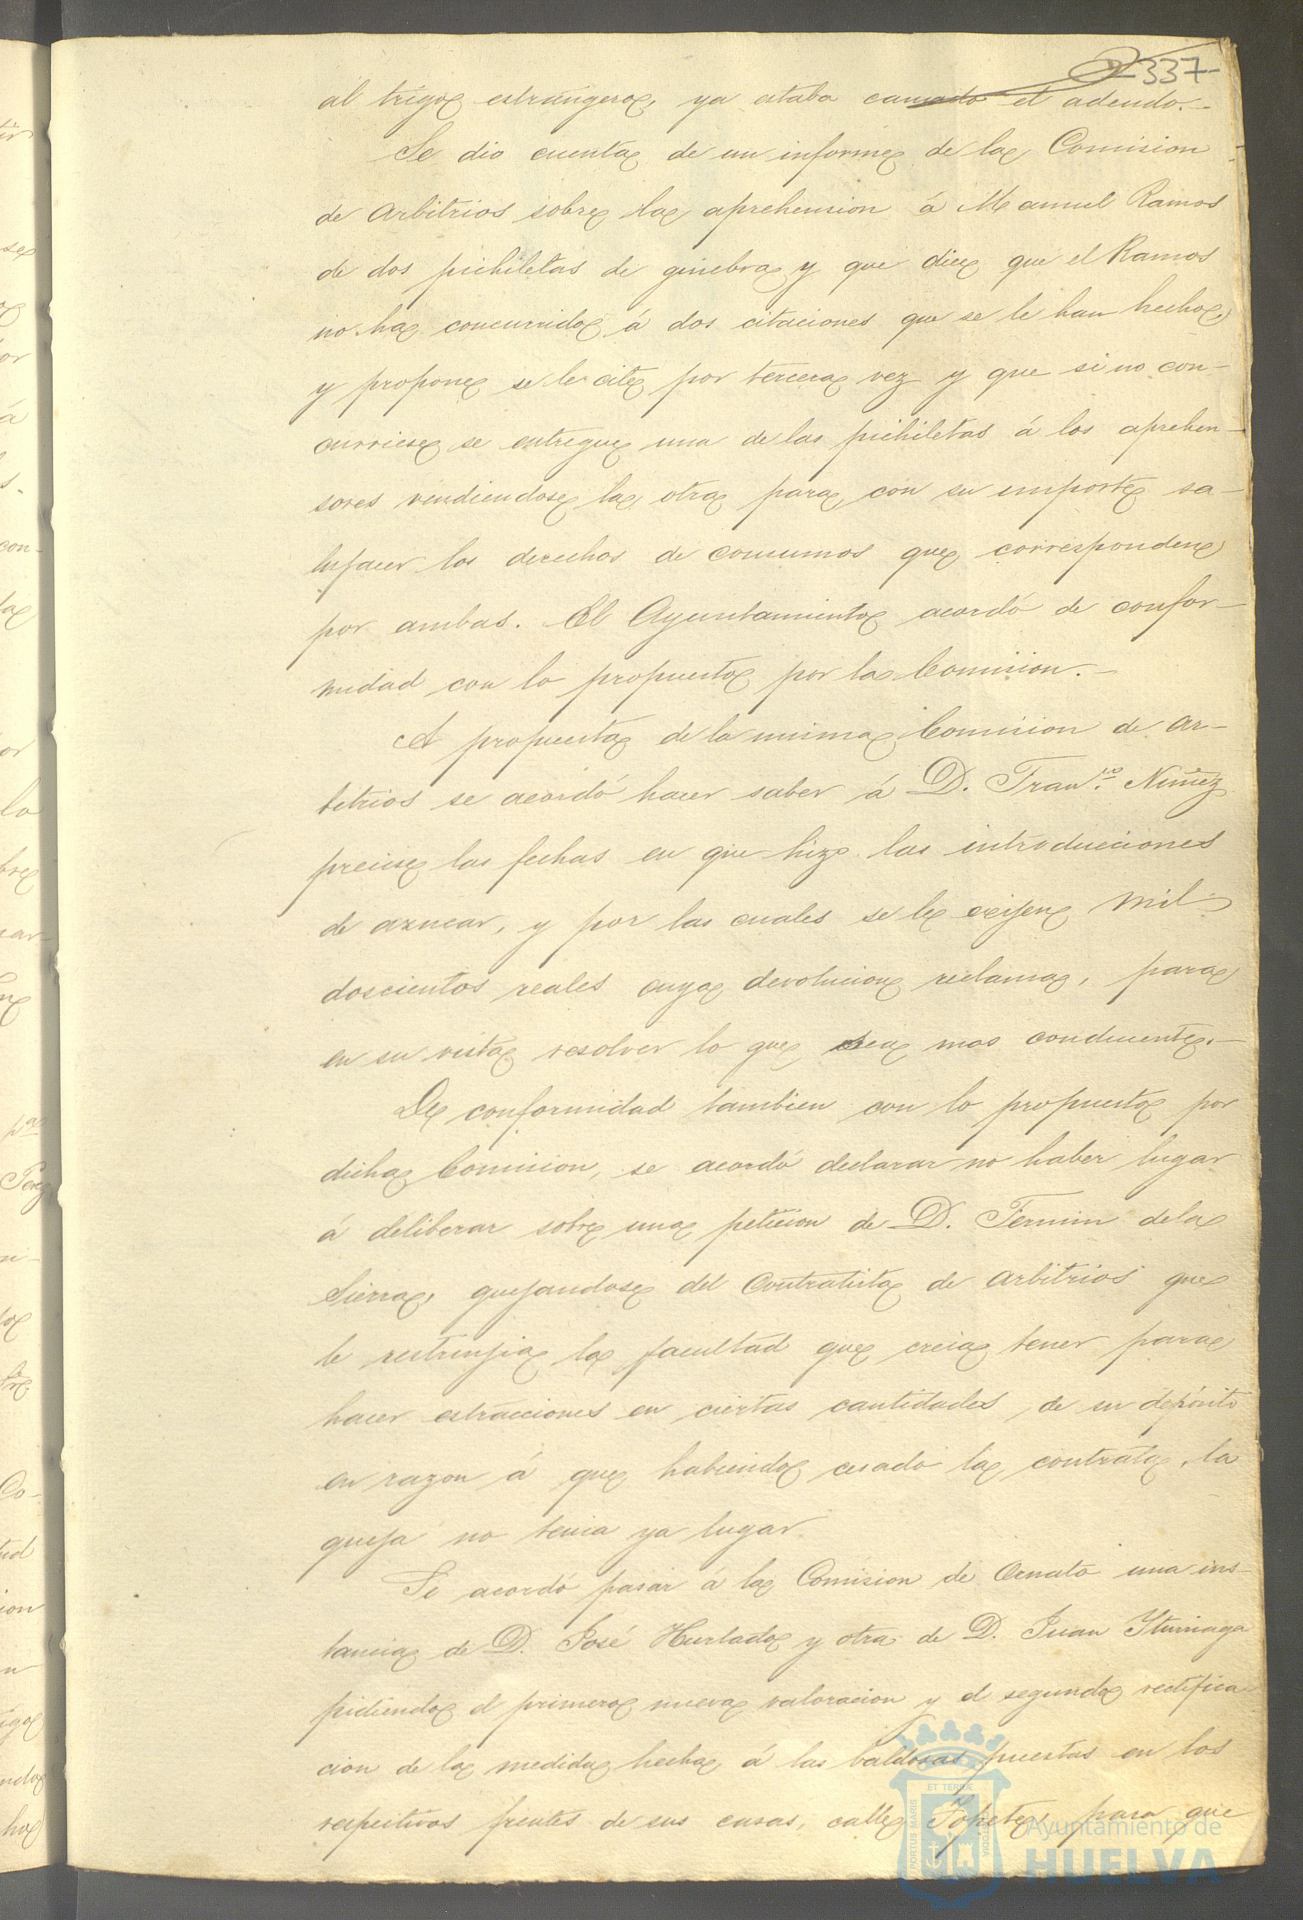 337
al trigo estrangero, ya estaba causado el adeudo.
Se dio cuenta de un informe de la Comision
de arbitrios sobre la aprehension á Manuel Ramos
de dos pichiletas de ginebra y que dice que el Ramos
no ha concurrido á dos citaciones que se le han hecho,
y propone se le cite por tercera vez y que si no con-
curriese se entregue una de las pichiletas á los aprehen-
sores vendiendose la otra para con su importe sa-
tisfacer los derechos de consumos que corresponden
por ambas. El Ayuntamiento acordó de confor-
midad con lo propuesto por la Comision.
A propuesta de la misma Comision de ar-
bitrios se acordó hacer saber á D. Fran.co Nuñez
precise las fechas en que hizo las introducciones
de azucar, y por las cuales se le exijen mil
doscientos reales cuya devolucion reclama, para
en su vista resolver lo que sea mas conducente.
De conformidad tambien con lo propuesto por
dicha Comision, se acordó declarar no haber lugar
á deliberar sobre una peticion de D. Fermin de la
Sierra, quejandose del Contratista de arbitrios que
le restrinjia la facultad que creia tener para
hacer estracciones en ciertas cantidades de su depósito
en razon á que habiendo cesado la contrata, la
queja no tenia ya lugar.
Se acordó pasar á la Comision de Ornato una ins-
tancia de D. José Hurtado y otra de D. Juan Yturriaga
pidiendo el primero nueva valoracion y el segundo rectifica
cion de la medida hecha á las baldosas puestas en los
respectivos frentes de sus casas, calle Topete, para que
PORTUS MARIS
ET TERRÆ
CUSTODIA
Ayuntamiento de
HUELVA